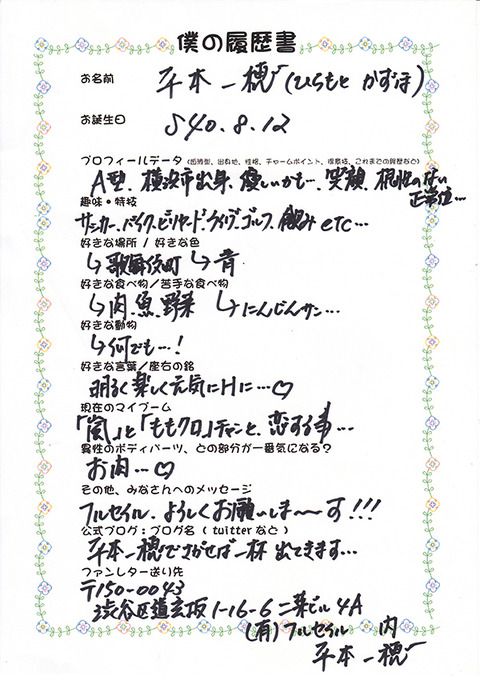 僕の履歴書
お名前
平本一穂(ひらもと かずほ)
お誕生日
S40.8.12
プロフィールデータ(血液型、出身地、性格、チャームポイント、得意技、これまでの経歴など)
A型、横浜市出身、優しいかも…、笑顔、根性のない
正常位…
趣味・特技
サッカー、バイク、ビリヤード、ダイブ、ゴルフ、飲み etc…
好きな場所 / 好きな色
↳歌舞伎町 ↳青
好きな食べ物/苦手な食べ物
↳肉、魚、野菜 ↳にんじんサン…
好きな動物
↳何でも…!
好きな言葉/座右の銘
明るく楽しく元気にHに…♡
現在のマイブーム
「嵐」と「ももクロ」チャンと、恋する事…
異性のボディパーツ、どの部分が一番気になる?
お肉…♡
その他、みなさんへのメッセージ
フルセイル、よろしくお願いしま〜す!!!
公式ブログ:ブログ名 ( twitterなど )
平本一穂でさがせば一杯出てきます…
ファンレター送り先
〒150-0043
渋谷区道玄坂1-16-6 二葉ビル4A
(有)フルセイル 内
平本一穂